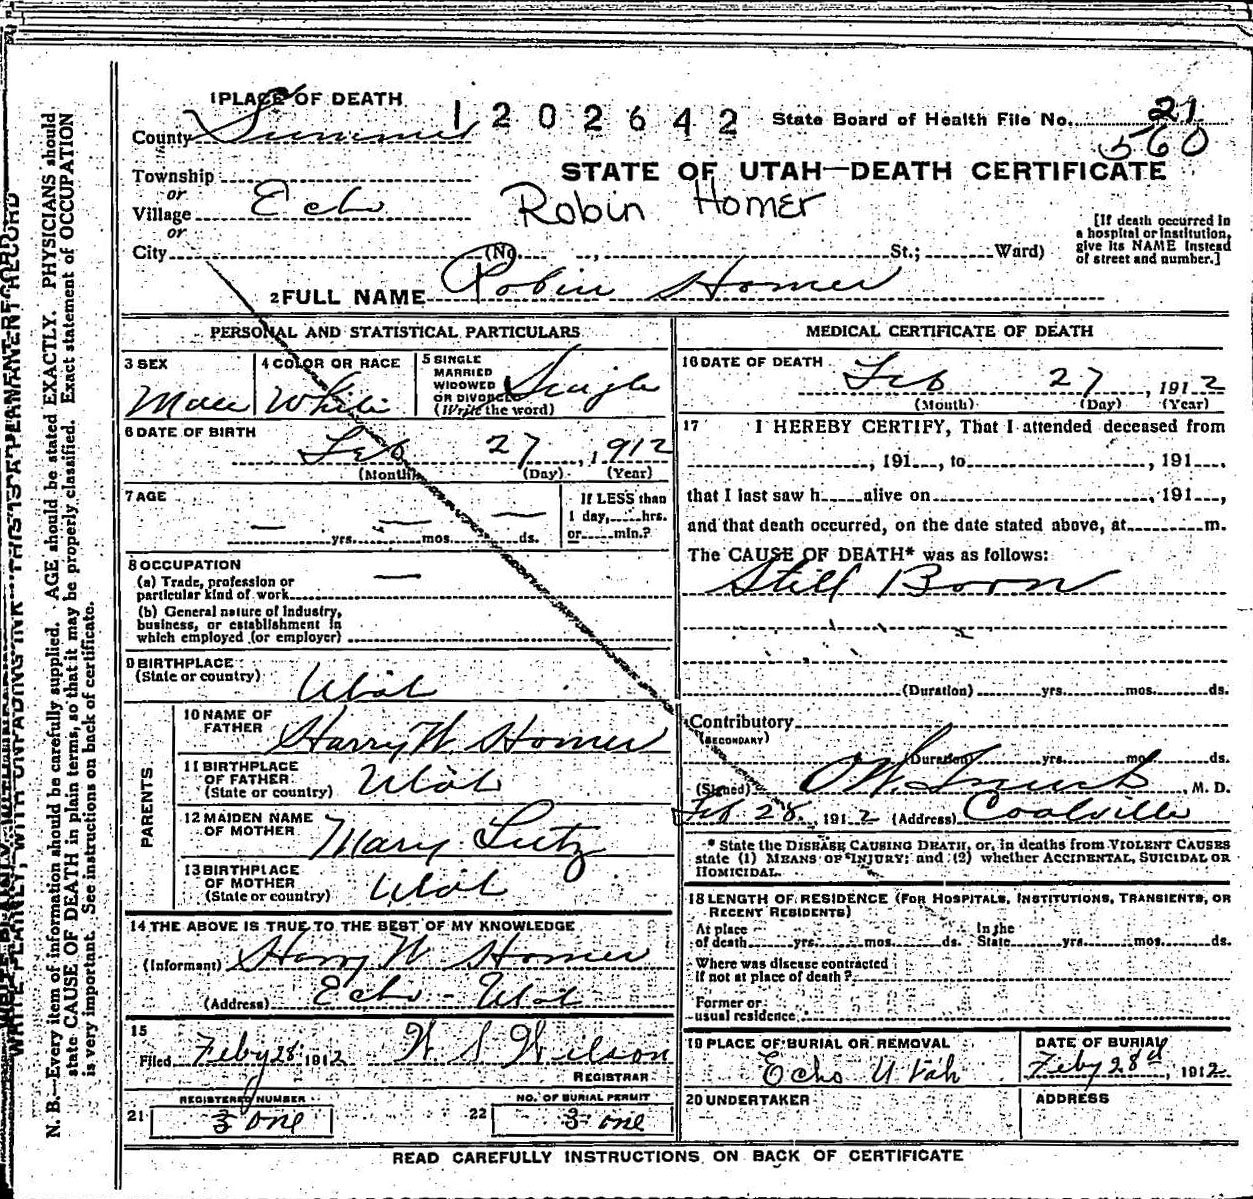 1 PLACE OF DEATH
County Summit
1202642
State Board of Health File No. 21
560
STATE OF UTAH—DEATH CERTIFICATE
Township
or
Village Echo
or
City
Robin Homer
(No. , St.; Ward)
[If death occurred in
a hospital or institution,
give its NAME instead
of street and number.]
2 FULL NAME Robin Homer
PERSONAL AND STATISTICAL PARTICULARS
3 SEX
Male
4 COLOR OR RACE
White
5 SINGLE
MARRIED
WIDOWED
OR DIVORCED
(Write the word)
Single
6 DATE OF BIRTH
Feb 27, 1912
(Month) (Day) (Year)
7 AGE
— yrs. — mos. — ds.
If LESS than
1 day, hrs.
or min.?
8 OCCUPATION
(a) Trade, profession or
particular kind of work —
(b) General nature of industry,
business, or establishment in
which employed (or employer)
9 BIRTHPLACE
(State or country)
Utah
PARENTS
10 NAME OF
FATHER
Harry W. Homer
11 BIRTHPLACE
OF FATHER
(State or country)
Utah
12 MAIDEN NAME
OF MOTHER
Mary Lutz
13 BIRTHPLACE
OF MOTHER
(State or country)
Utah
14 THE ABOVE IS TRUE TO THE BEST OF MY KNOWLEDGE
(Informant) Harry W Homer
(Address) Echo - Utah
15
Filed Feby 28 1912 W S Wilson
REGISTRAR
REGISTERED NUMBER
21 3 one
NO. OF BURIAL PERMIT
22 3 one
MEDICAL CERTIFICATE OF DEATH
16 DATE OF DEATH
Feb 27, 1912
(Month) (Day) (Year)
17 I HEREBY CERTIFY, That I attended deceased from
, 191 , to , 191 ,
that I last saw h alive on , 191 ,
and that death occurred, on the date stated above, at m.
The CAUSE OF DEATH* was as follows:
Still Born
(Duration) yrs. mos. ds.
Contributory
(SECONDARY)
(Duration) yrs. mo. ds.
(Signed) , M. D.
Feb 28, 1912 (Address) Coalville
* State the DISEASE CAUSING DEATH, or, in deaths from VIOLENT CAUSES
state (1) MEANS OF INJURY; and (2) whether ACCIDENTAL, SUICIDAL OR
HOMICIDAL.
18 LENGTH OF RESIDENCE (FOR HOSPITALS, INSTITUTIONS, TRANSIENTS, OR
RECENT RESIDENTS)
At place
of death yrs. mos. ds.
In the
State yrs. mos. ds.
Where was disease contracted
if not at place of death?
Former or
usual residence
19 PLACE OF BURIAL OR REMOVAL
Echo Utah
DATE OF BURIAL
Feby 28d, 1912
20 UNDERTAKER
ADDRESS
READ CAREFULLY INSTRUCTIONS ON BACK OF CERTIFICATE
WRITE PLAINLY, WITH UNFADING INK—THIS IS A PERMANENT RECORD
N. B.—Every item of information should be carefully supplied. AGE should be stated EXACTLY. PHYSICIANS should
state CAUSE OF DEATH in plain terms, so that it may be properly classified. Exact statement of OCCUPATION
is very important. See instructions on back of certificate.